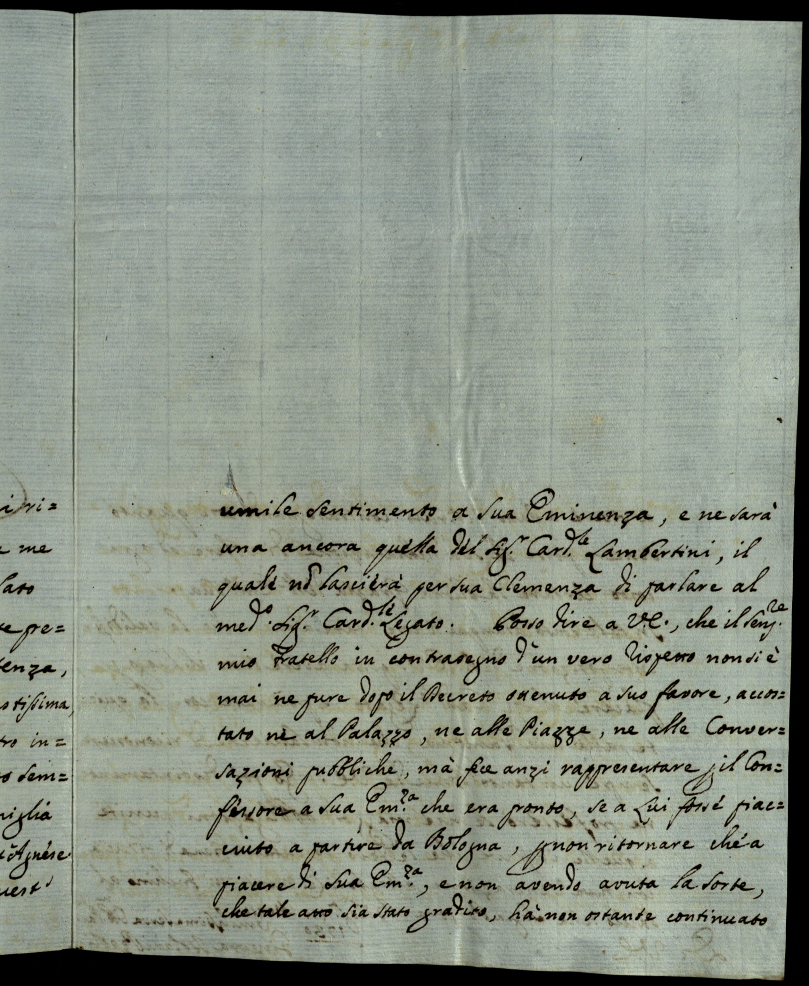 i ri=
e me
lato
te pre=
tenza,
stissima,
tro in=
to sem=
miglia
Agnese
uest'
umile sentimento a sua Eminenza, e ne sarà
una ancora quella del Sig.r Card.le Lambertini, il
quale nō lascierà per sua Clemenza di parlare al
med.o Sig.r Card.le Legato. Posso dire a VE., che il
mio Fratello in contrasegno d'un vero Rispetto non si è
mai ne pure dopo il Decreto ottenuto a suo favore, accos=
tato nè al Palazzo, ne alle Piazze, ne alle Conver=
sazioni pubbliche, mà fece anzi rappresentare p il Con=
fessore a sua Em.za che era pronto, se a Lui fosse piac=
ciuto a partire da Bologna, p non ritornare che a
piacere di sua Em.za, e non avendo avuta la sorte,
che tale atto sia stato gradito, hà non ostante continuato